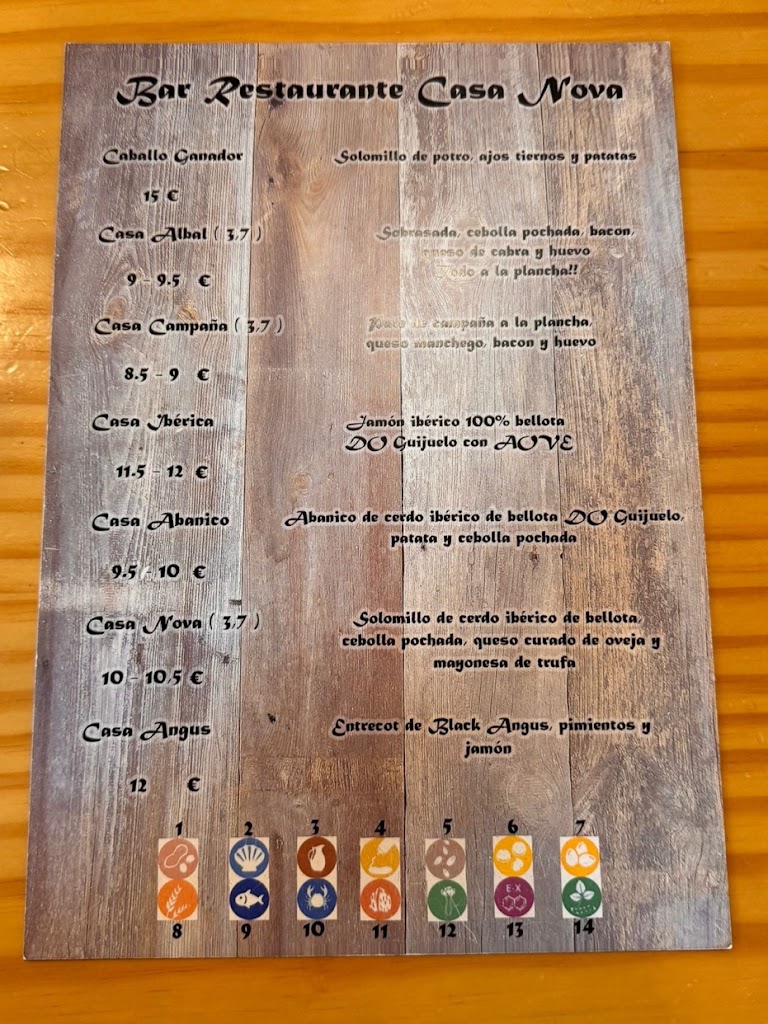 Bar Restaurante Casa Nova
Caballo Ganador
Solomillo de potro, ajos tiernos y patatas
15 €
Casa Albal ( 3,7 )
Sobrasada, cebolla pochada, bacon,
queso de cabra y huevo
Todo a la plancha!!
9 - 9.5 €
Casa Campaña ( 3,7 )
Paté de campaña a la plancha,
queso manchego, bacon y huevo
8.5 - 9 €
Casa Ibérica
Jamón ibérico 100% bellota
DO Guijuelo con AOVE
11.5 - 12 €
Casa Abanico
Abanico de cerdo ibérico de bellota DO Guijuelo,
patata y cebolla pochada
9.5 - 10 €
Casa Nova ( 3,7 )
Solomillo de cerdo ibérico de bellota,
cebolla pochada, queso curado de oveja y
mayonesa de trufa
10 - 10,5 €
Casa Angus
Entrecot de Black Angus, pimientos y
jamón
12 €
1 2 3 4 5 6 7
E-X
8 9 10 11 12 13 14